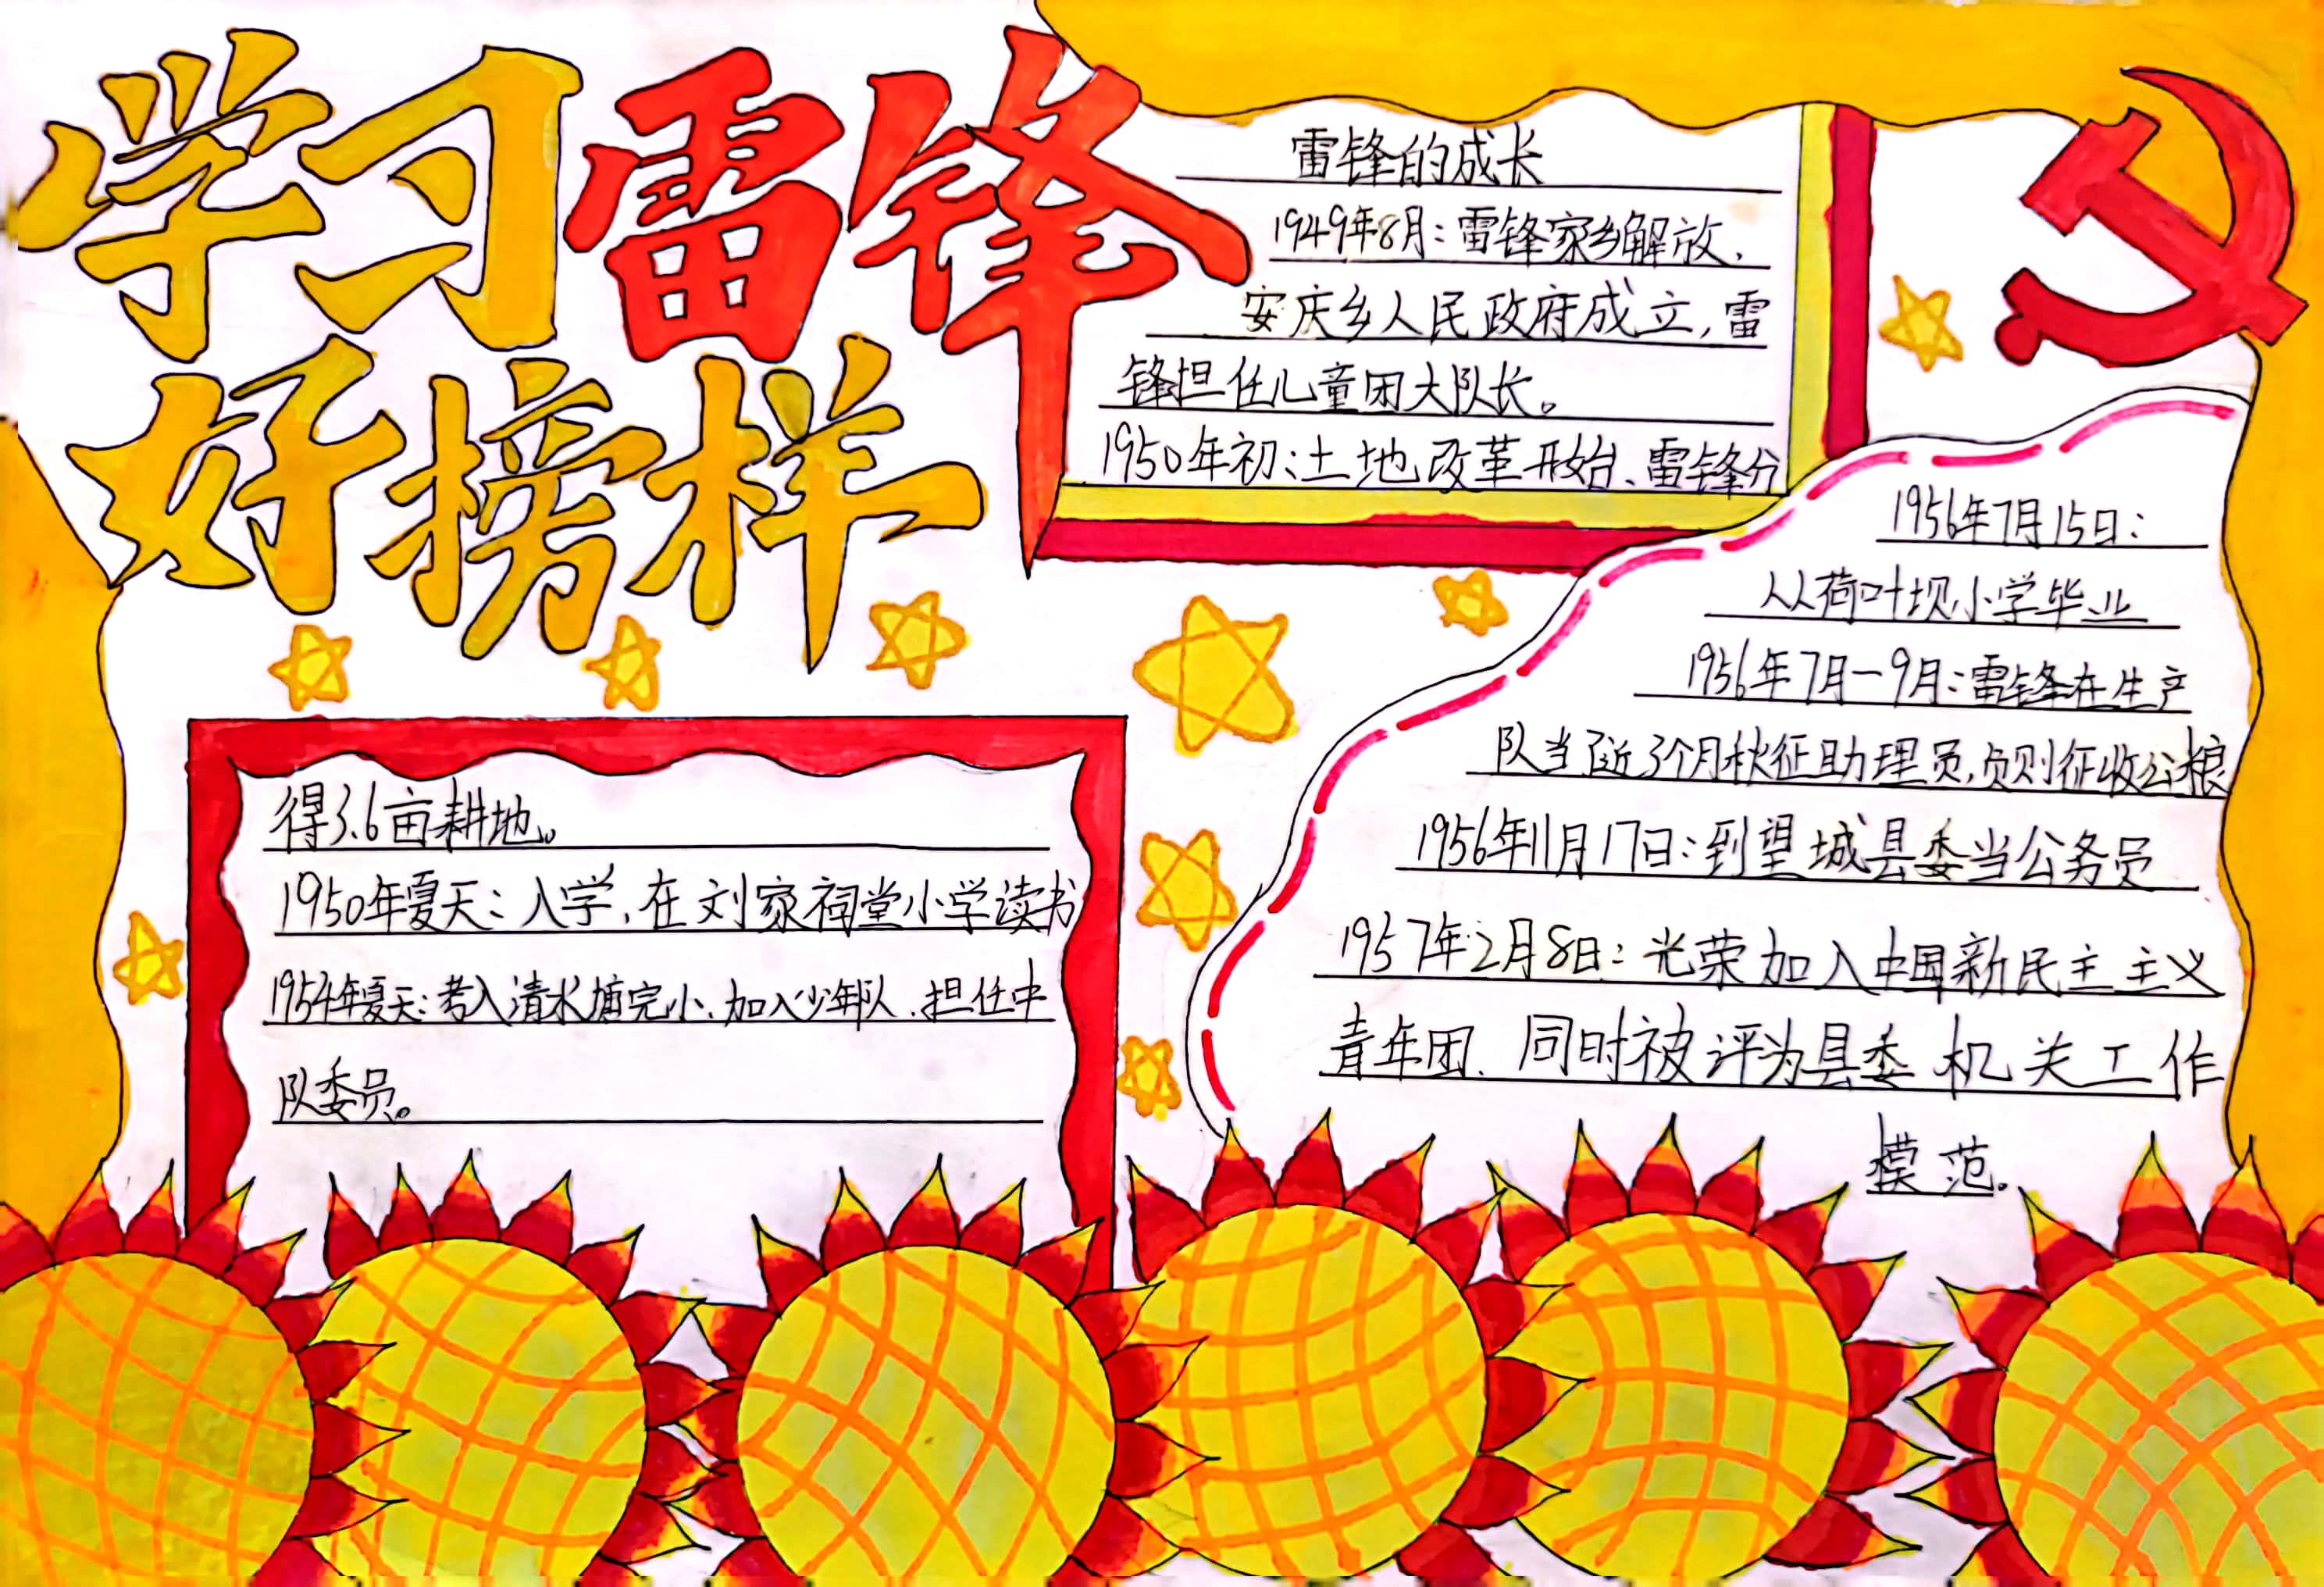 学习雷锋
好榜样
雷锋的成长
1949年8月：雷锋家乡解放，
安庆乡人民政府成立，雷
锋担任儿童团大队长。
1950年初：土地改革开始、雷锋分
得3.6亩耕地。
1950年夏天：入学，在刘家祠堂小学读书
1954年夏天：考入清水塘完小，加入少年队，担任中
队委员。
1956年7月15日：
从荷叶坝小学毕业
1956年7月—9月：雷锋在生产
队当了近3个月秋征助理员，负则征收公粮
1956年11月17日：到望城县委当公务员
1957年2月8日：光荣加入中国新民主主义
青年团．同时被评为县委机关工作
模范。